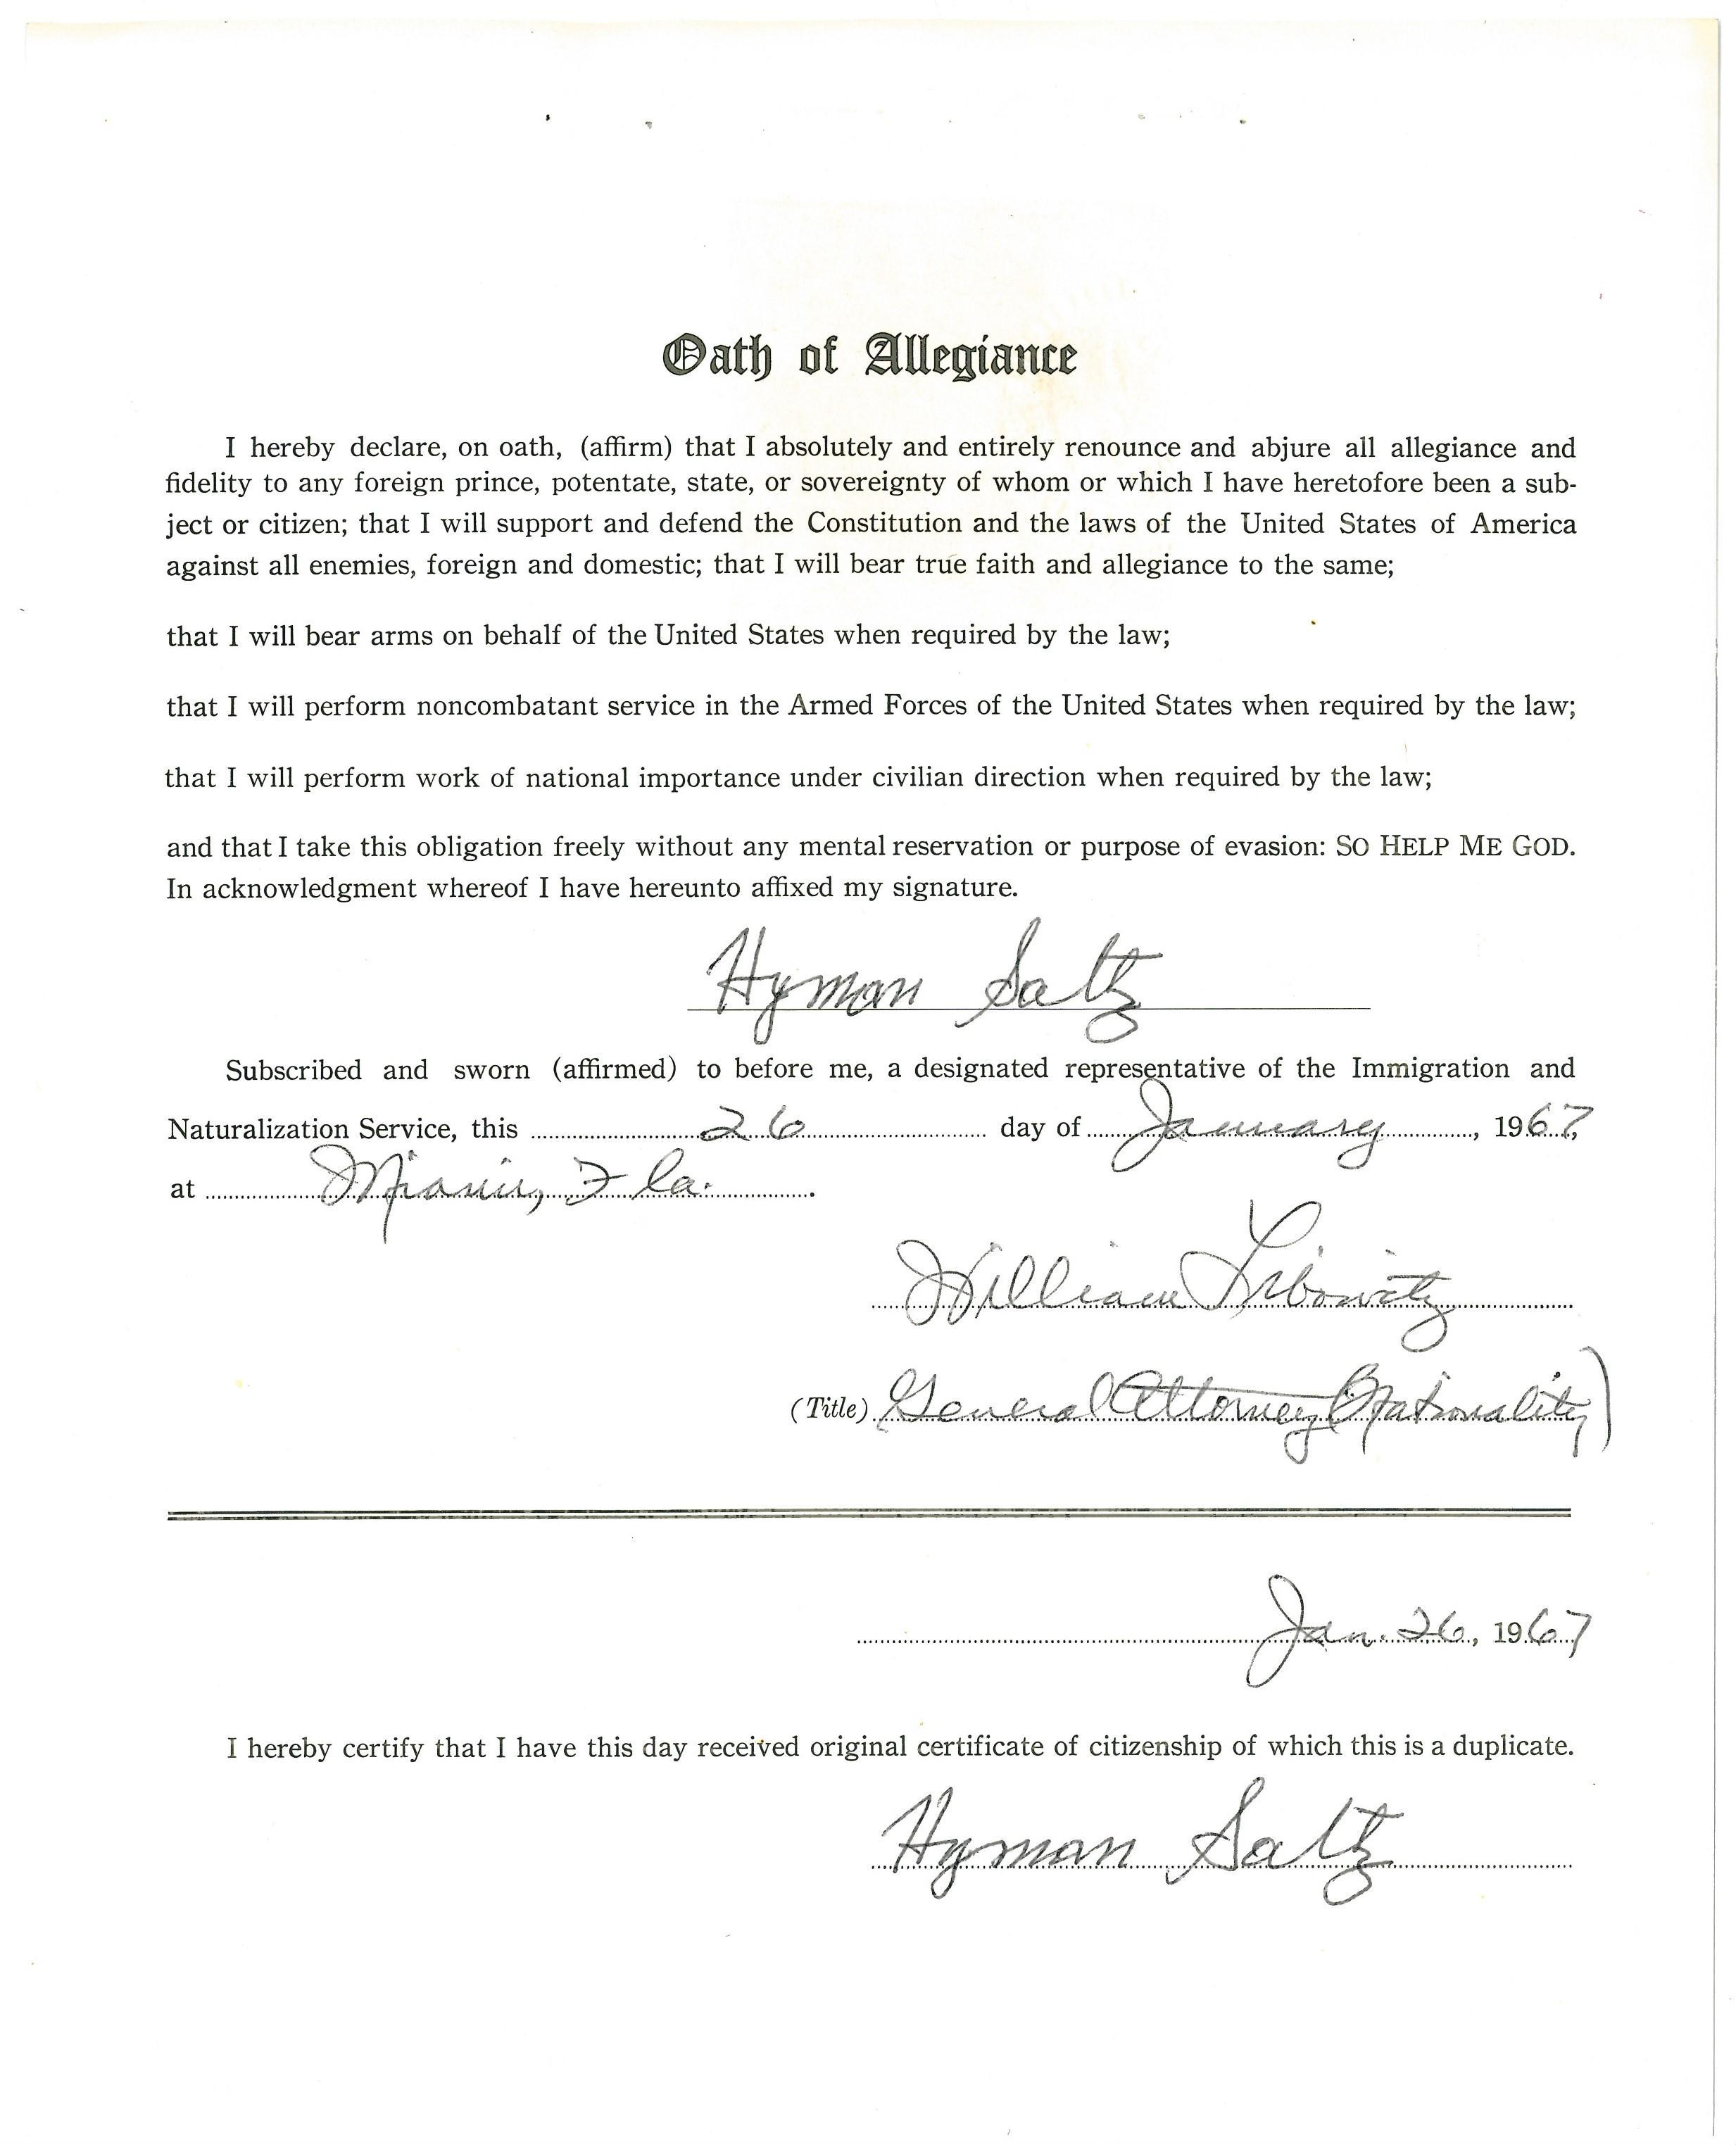 Oath of Allegiance
I hereby declare, on oath, (affirm) that I absolutely and entirely renounce and abjure all allegiance and
fidelity to any foreign prince, potentate, state, or sovereignty of whom or which I have heretofore been a sub-
ject or citizen; that I will support and defend the Constitution and the laws of the United States of America
against all enemies, foreign and domestic; that I will bear true faith and allegiance to the same;
that I will bear arms on behalf of the United States when required by the law;
that I will perform noncombatant service in the Armed Forces of the United States when required by the law;
that I will perform work of national importance under civilian direction when required by the law;
and that I take this obligation freely without any mental reservation or purpose of evasion: SO HELP ME GOD.
In acknowledgment whereof I have hereunto affixed my signature.
Hyman Saltz
Subscribed and sworn (affirmed) to before me, a designated representative of the Immigration and
Naturalization Service, this 26 day of January, 1967,
at Miami, Fla.
William Libowitz
(Title) General Attorney (Nationality)
Jan. 26, 1967
I hereby certify that I have this day received original certificate of citizenship of which this is a duplicate.
Hyman Saltz